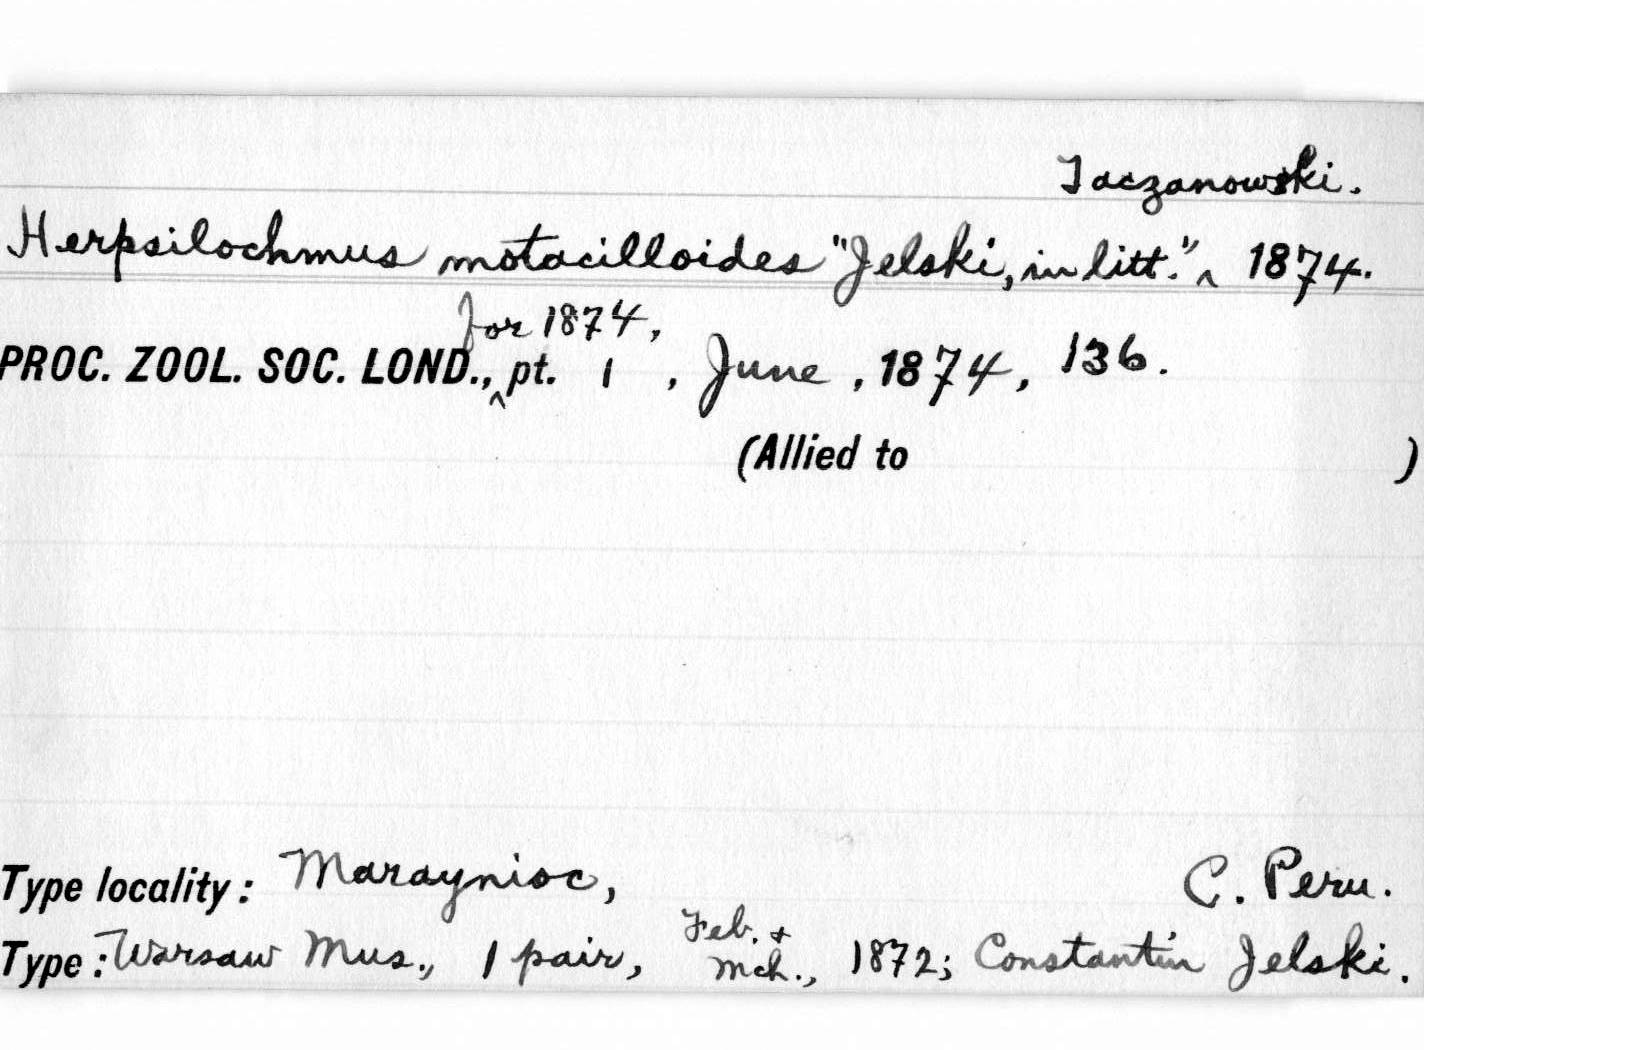 Taczanowski.
Herpsilochmus motacilloides "Jelski, in litt."‸ 1874.
for 1874,
PROC. ZOOL. SOC. LOND.,‸ pt. 1, June, 1874, 136.
(Allied to )
Type locality: Maraynioc, C. Peru.
Feb. &
Type: Warsaw Mus., 1 pair, Mch., 1872; Constantin Jelski.